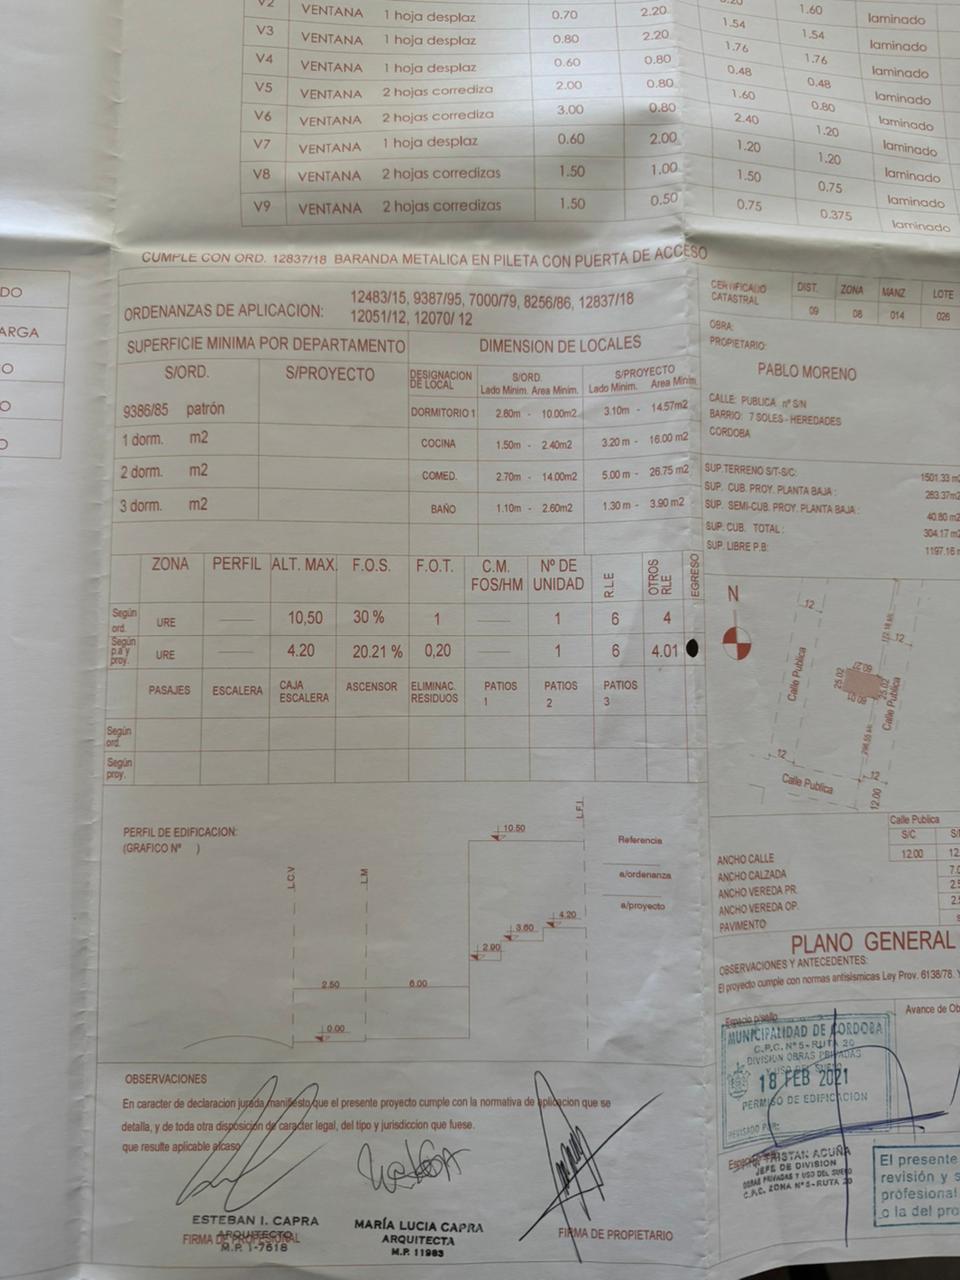 V2 VENTANA 1 hoja desplaz 0.70 2.20 1.60 laminado
V3 VENTANA 1 hoja desplaz 0.80 2.20 1.54 1.54 laminado
V4 VENTANA 1 hoja desplaz 0.60 0.80 1.76 1.76 laminado
V5 VENTANA 2 hojas corrediza 2.00 0.80 0.48 0.48 laminado
V6 VENTANA 2 hojas corrediza 3.00 0.80 1.60 0.80 laminado
V7 VENTANA 1 hoja desplaz 0.60 2.00 2.40 1.20 laminado
V8 VENTANA 2 hojas corredizas 1.50 1.00 1.20 1.20 laminado
V9 VENTANA 2 hojas corredizas 1.50 0.50 1.50 0.75 laminado
0.75 0.375 laminado
CUMPLE CON ORD. 12837/18 BARANDA METALICA EN PILETA CON PUERTA DE ACCESO
DO
ARGA
O
O
O
ORDENANZAS DE APLICACION: 12483/15, 9387/95, 7000/79, 8256/86, 12837/18
12051/12, 12070/ 12
SUPERFICIE MINIMA POR DEPARTAMENTO
S/ORD. S/PROYECTO
9386/85 patrón
1 dorm. m2
2 dorm. m2
3 dorm. m2
DIMENSION DE LOCALES
DESIGNACION DE LOCAL S/ORD. S/PROYECTO
Lado Minim. Area Minim. Lado Minim. Area Minim.
DORMITORIO 1 2.60m - 10.00m2 3.10m - 14.57m2
COCINA 1.50m - 2.40m2 3.20 m - 16.00 m2
COMED. 2.70m - 14.00m2 5.00 m - 26.75 m2
BAÑO 1.10m - 2.60m2 1.30 m - 3.90 m2
ZONA PERFIL ALT. MAX. F.O.S. F.O.T. C.M. FOS/HM Nº DE UNIDAD R.L.E OTROS RLE EGRESO
Según ord. URE 10,50 30 % 1 1 6 4
Según p.a y proy. URE 4.20 20.21 % 0,20 1 6 4.01
PASAJES ESCALERA CAJA ESCALERA ASCENSOR ELIMINAC. RESIDUOS PATIOS 1 PATIOS 2 PATIOS 3
Según ord.
Según proy.
PERFIL DE EDIFICACION:
(GRAFICO Nº )
L.C.V
L.M
L.F.I
10.50
4.20
3.60
2.90
2.50
6.00
0.00
Referencia
a/ordenanza
a/proyecto
OBSERVACIONES
En caracter de declaracion jurada manifiesto que el presente proyecto cumple con la normativa de aplicacion que se
detalla, y de toda otra disposicion de caracter legal, del tipo y jurisdiccion que fuese.
que resulte aplicable al caso
ESTEBAN I. CAPRA
ARQUITECTO
FIRMA DE PROFESIONAL
M.P. 1-7618
MARÍA LUCIA CAPRA
ARQUITECTA
M.P. 11983
FIRMA DE PROPIETARIO
CERTIFICADO CATASTRAL DIST. ZONA MANZ LOTE
09 08 014 026
OBRA:
PROPIETARIO:
PABLO MORENO
CALLE: PUBLICA nº S/N
BARRIO: 7 SOLES - HEREDADES
CORDOBA
SUP.TERRENO S/T-S/C: 1501.33 m2
SUP. CUB. PROY. PLANTA BAJA : 263.37m2
SUP. SEMI-CUB. PROY. PLANTA BAJA : 40.80 m2
SUP. CUB. TOTAL : 304.17 m2
SUP. LIBRE P.B: 1197.16 m2
N
12
12
Calle Publica
25.02
Calle Publica
12
12
Calle Publica
12.00
Calle Publica
S/C
ANCHO CALLE 12.00 12.
ANCHO CALZADA 7.0
ANCHO VEREDA PR. 2.5
ANCHO VEREDA OP. 2.5
PAVIMENTO
PLANO GENERAL
OBSERVACIONES Y ANTECEDENTES:
El proyecto cumple con normas antisismicas Ley Prov. 6138/78.
Espacio p/sello
Avance de Ob
MUNICIPALIDAD DE CORDOBA
C.P.C. Nº 5 - RUTA 20
DIVISION OBRAS PRIVADAS
Y USO DEL SUELO
18 FEB 2021
PERMISO DE EDIFICACION
REVISADO POR:
TRISTAN ACUÑA
JEFE DE DIVISION
OBRAS PRIVADAS Y USO DEL SUELO
C.P.C. ZONA Nº 5 - RUTA 20
El presente
revisión y s
profesional
o la del pro